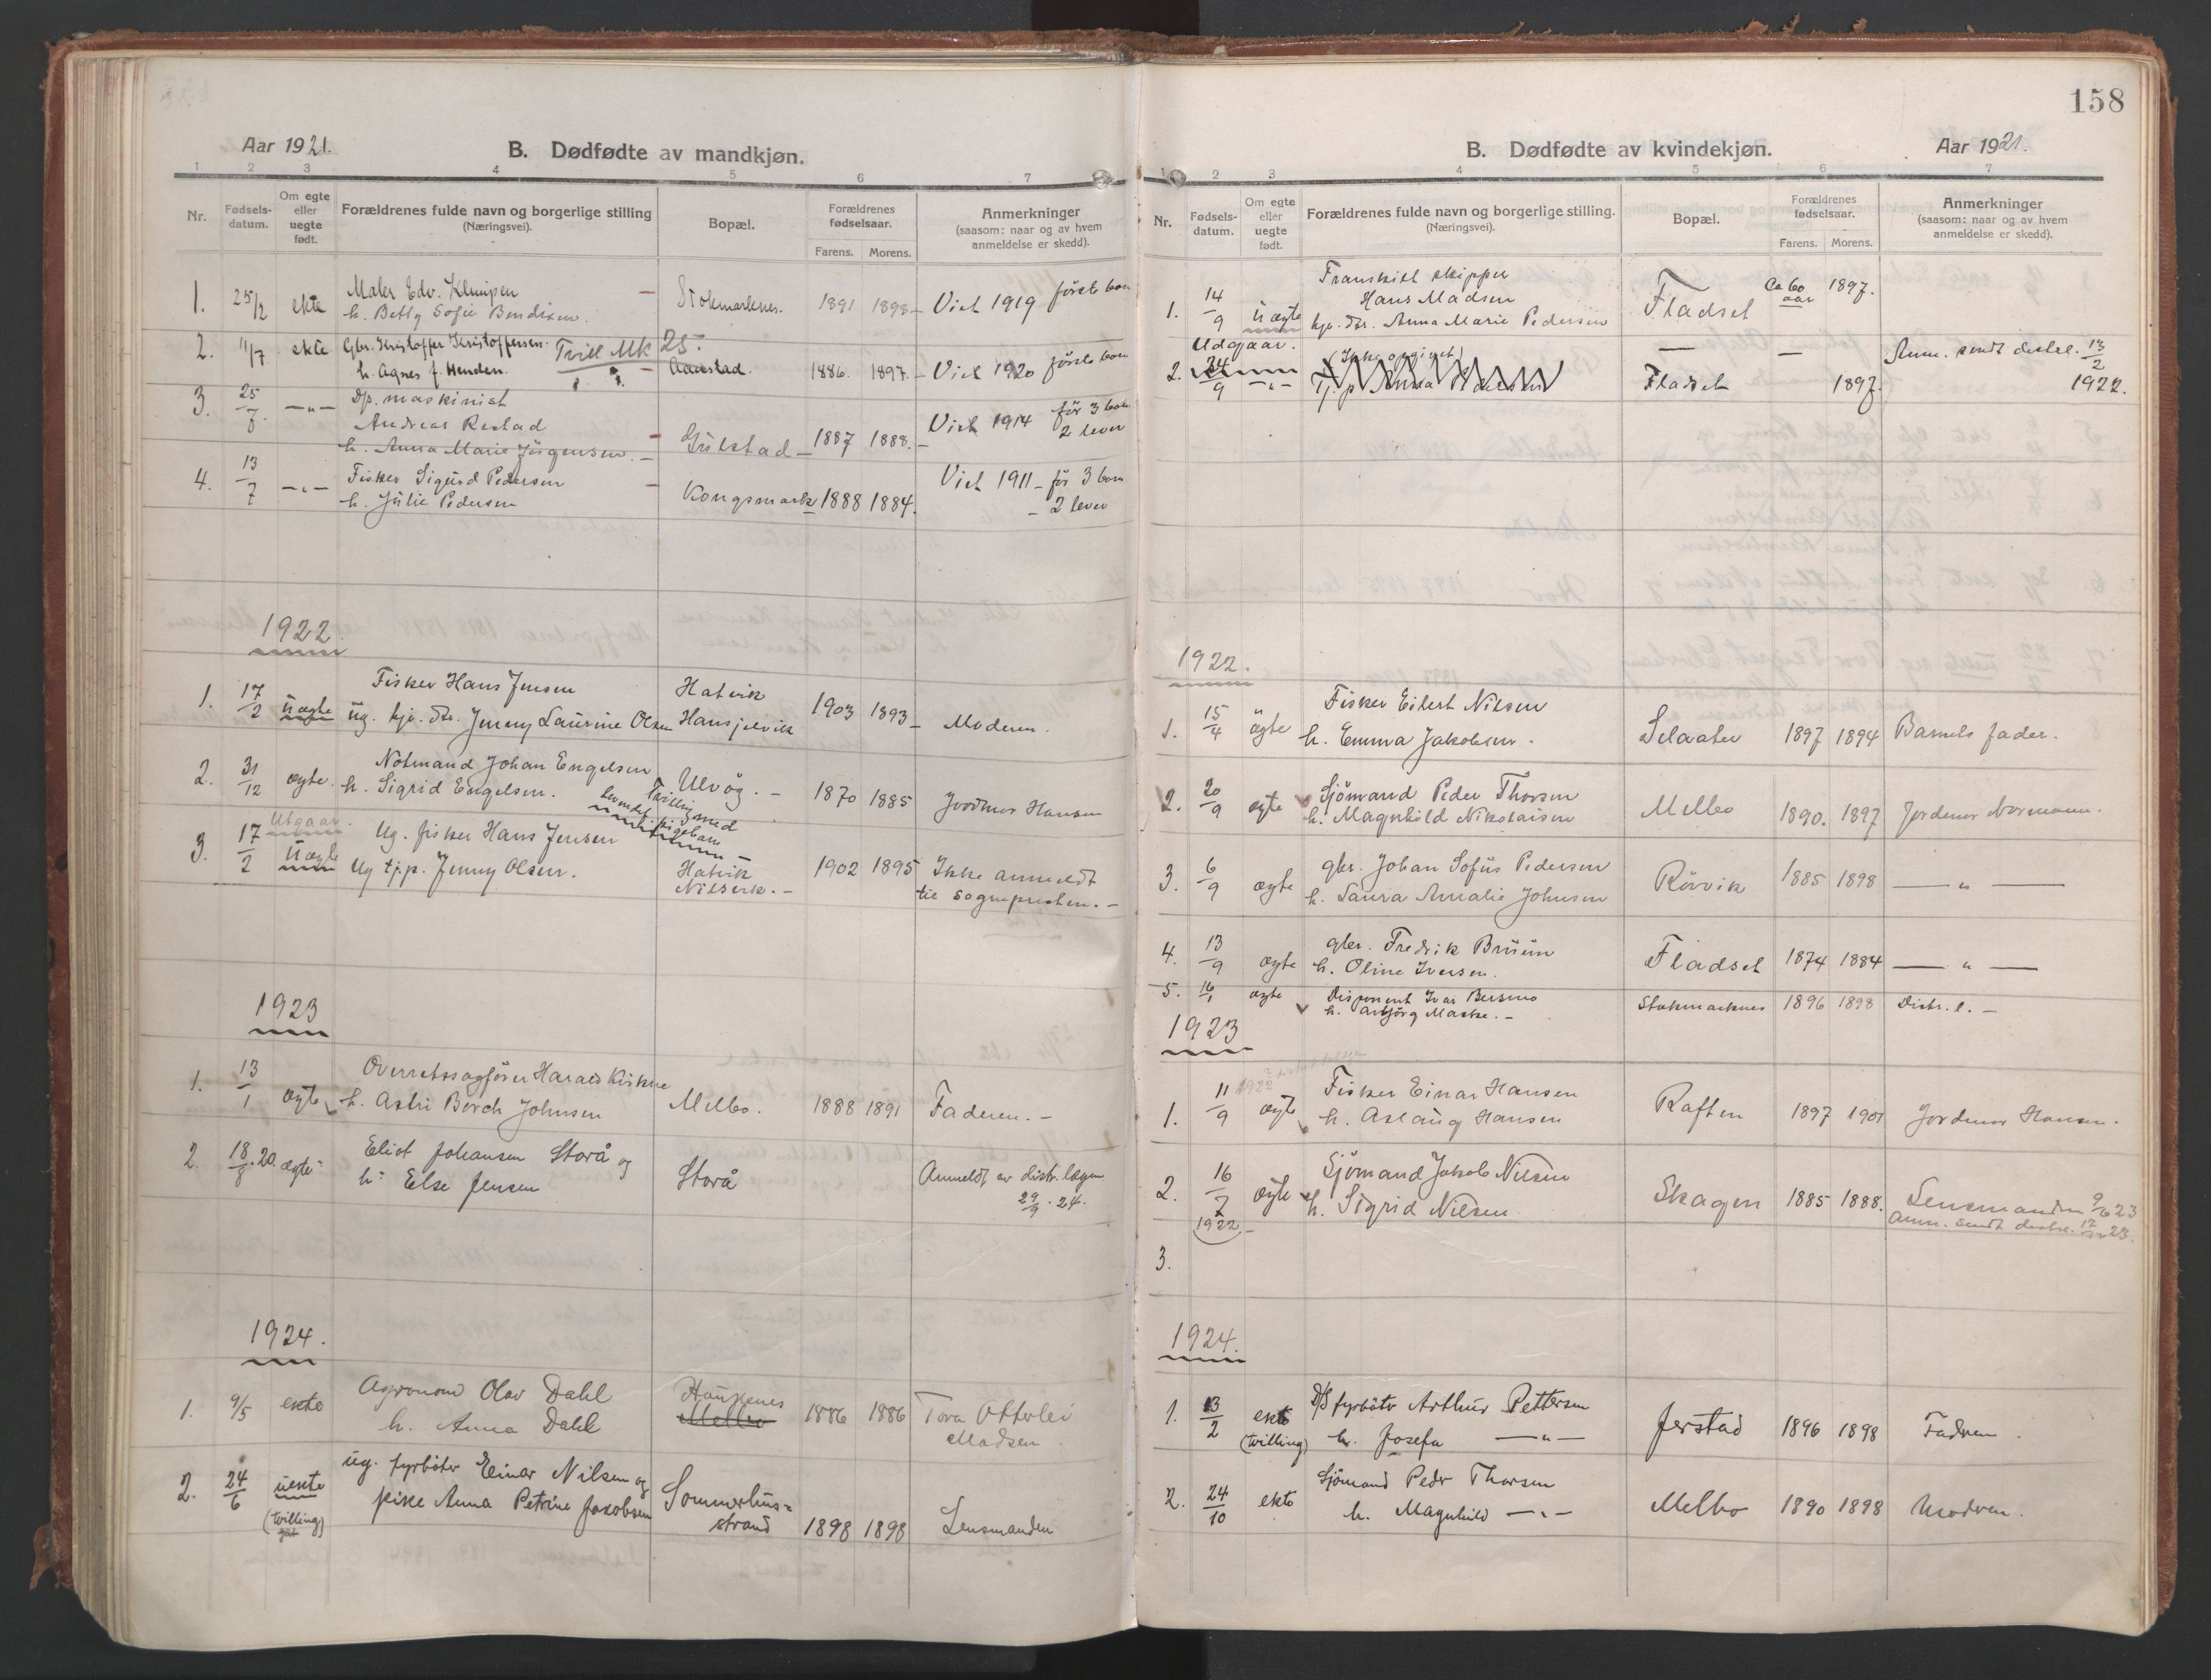 Aar 1921.
B. Dødfødte av mandkjøn.
1 2 3 4 5 6 7
Nr.
Fødsels-
datum.
Om egte
eller
uegte
født.
Forældrenes fulde navn og borgerlige stilling
(Næringsvei).
Bopæl.
Forældrenes
fødselsaar.
Farens. Morens.
Anmerkninger
(saasom: naar og av hvem
anmeldelse er skedd).
1. 25/2 ekte Maler Edv. Stokmarknes. 1891 1898 – Viet 1919 först
h. Betty Sofie Bendixen.
2. 11/7 ekte Gbr. Kristoffer Kristoffersen. Tvill Mk 25.
h. Agnes f. Aanstad. 1886. 1897. – Viet 1920 först
3. 25/7 –„– Dp. maskinist
Andreas Restad
h. Anna Marie Jörgensen. – Gulstad – 1887 1888. – Viet 1914 för 3
2 lever
4. 13/7 –„– Fisker Sigurd Pedersen
h. Julie Pedersen Kongsmark 1888 1884. Viet 1911 – för 3
– 2 lever
1922
1. 17/2 uægte Fisker Hans Jensen Hatvik
ug. Jenny Laurine Olsen 1903 1893 – Moderen.
2. 31/12 ægte. Notmand Johan Engelsen
h. Sigrid Engelsen. Ulvög. – 1870 1885 Jordmor Hansen
Tvilling med
levende pigebarn
Utgaar.
3. 17/2 uægte Ug. fisker Hans Jensen
Ug tj.p. Jenny Olsen. Hatvik 1902 1895 Ikke anmeldt
til sognepresten. –
1923
1. 13/1 ægte Overretssagförer Harald
h. Astri Borch Johnsen Melbo. 1888 1891 Faderen. –
2. 18/8.20. ægte Eliot Johansen Storå og
h: Else Jensen Storå Anmeldt av distr. lægen
29/9. 24.
1924.
1. 9/5 ekte Agronom Olav Dahl Haugnes
h. Anna Dahl Melbo 1886 1886 Tora Otterlei
Madsen.
2. 24/6 uekte (tvilling) ug. fyrböter Einar Nilsen og
pike Anna Petrine Jakobsen Sommerhus=
strand 1898 1898 Lensmanden
158
B. Dødfødte av kvindekjøn.
Aar 1921.
1 2 3 4 5 6 7
Nr.
Fødsels-
datum.
Om egte
eller
uegte
født.
Forældrenes fulde navn og borgerlige stilling.
(Næringsvei).
Bopæl.
Forældrenes
fødselsaar.
Farens. Morens.
Anmerkninger
(saasom: naar og av hvem
anmeldelse er skedd).
1. 14/9 uægte skipper
Hans Madsen
Anna Marie Pedersen Fladset Ca 60 aar 1897.
Udgaar.
2. 24/9 –„– (Ikke opgivet) — — Anm. sendt distrl. 13/2
Tj. p. Anna Pedersen Fladset 1897. 1922.
1922.
1. 15/4 ægte Fisker Eilert Nilsen
h. Emma Jakobsen. Selaater 1897 1894 Barnets fader.
2. 20/9 ægte Sjömand Peder Thorsen
h. Magnhild Nikolaisen Melbo 1890. 1897 Jordmor Normann.
3. 6/9 ægte gbr. Johan Sofus Pedersen
h. Laura Amalie Johnsen Rörvik 1885 1898 — „ —
4. 13/9 ægte gbr. Fredrik Bruun
h. Oline Iversen. Fladset 1874 1884 — „ —
5. 16/1 ægte Disponent Ivar
h. Arbjörg Maske. – Stokmarknes 1896 1898 Distr. l. –
1923
1. 11/9 1922 ægte Fisker Einar Hansen
h. Aslaug Hansen Raften 1897 1901 Jordmor Hansen.
2. 16/7 1922 ægte Sjömand Jakob Nilsen
h. Sigrid Nilsen. Skagen 1885 1888. Lensmanden 9/6 23
Anm. sendt distrl. 23.
3.
1924.
1. 13/2 ekte (tvilling) D/S fyrböter Arthur Pettersen
h. Josefa —„— Jerstad 1896 1898 Fadren.
2. 24/10 ekte Sjömand Peder Thorsen
h. Magnhild —„— Melbo 1890 1898 Modren.